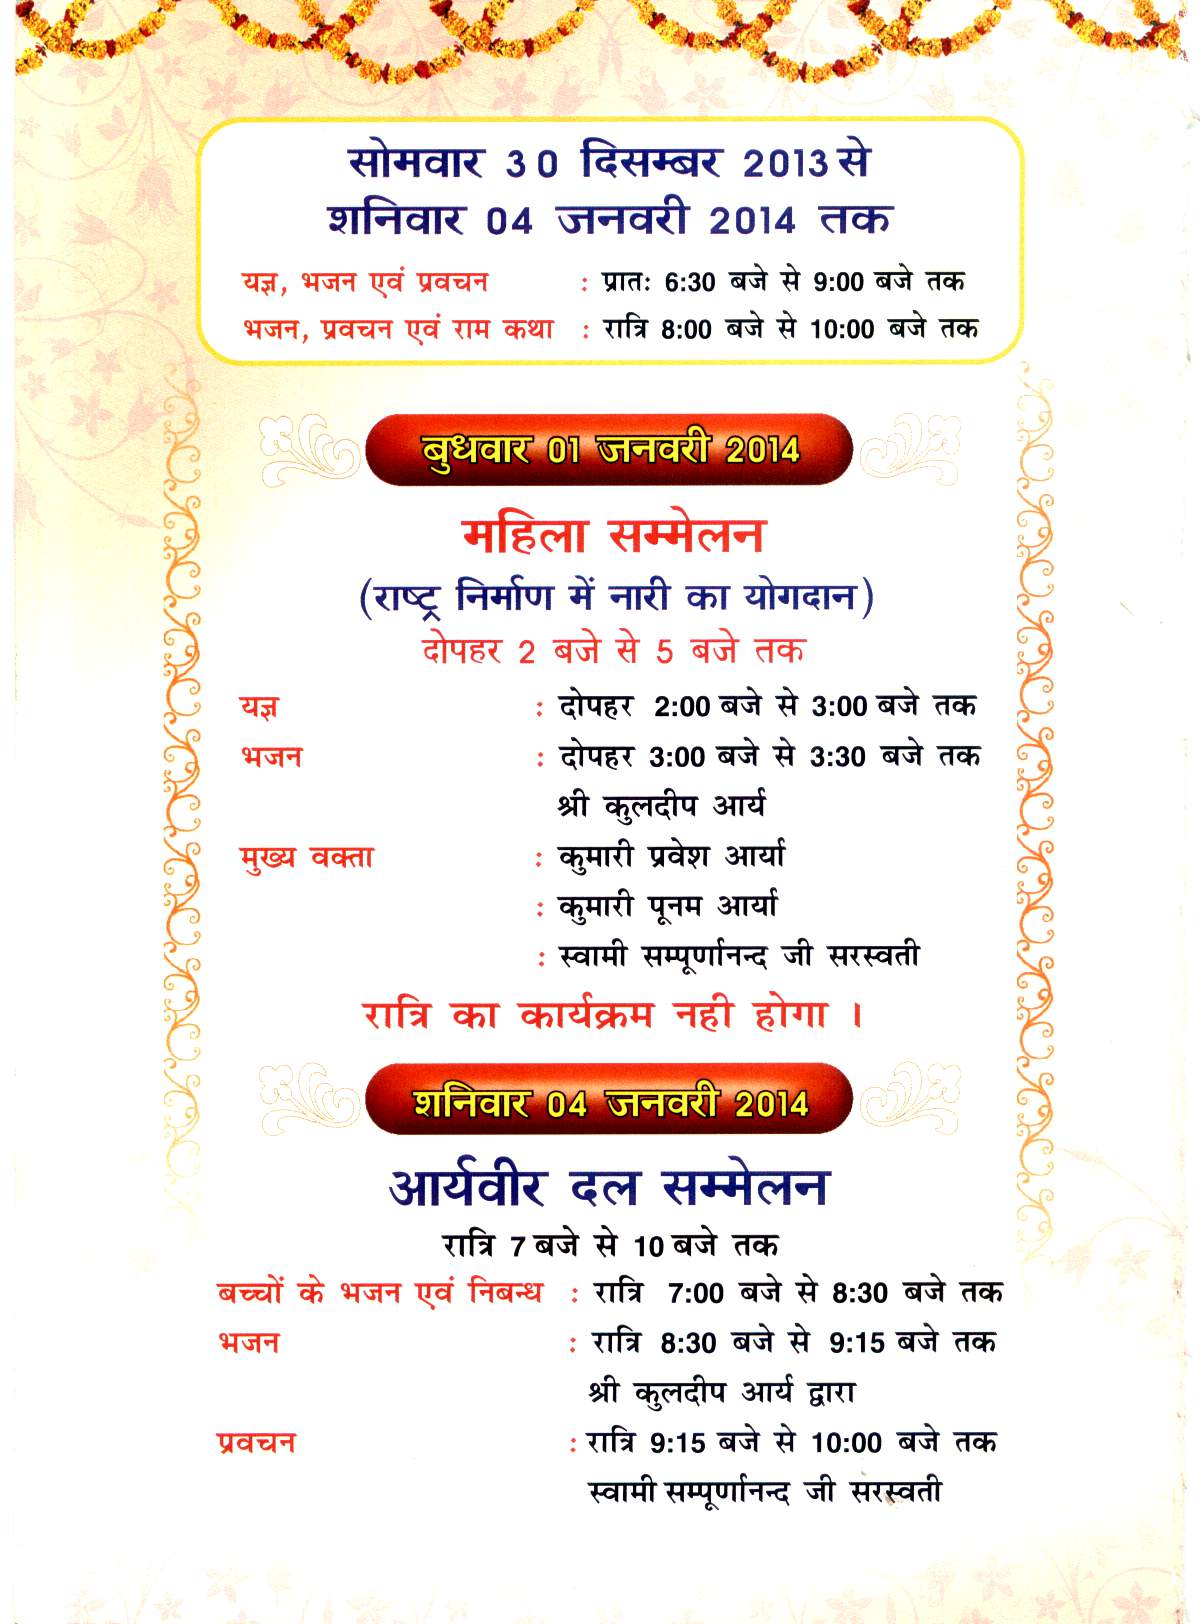 सोमवार 30 दिसम्बर 2013 से
शनिवार 04 जनवरी 2014 तक
यज्ञ, भजन एवं प्रवचन : प्रातः 6:30 बजे से 9:00 बजे तक
भजन, प्रवचन एवं राम कथा : रात्रि 8:00 बजे से 10:00 बजे तक
बुधवार 01 जनवरी 2014
महिला सम्मेलन
(राष्ट्र निर्माण में नारी का योगदान)
दोपहर 2 बजे से 5 बजे तक
यज्ञ : दोपहर 2:00 बजे से 3:00 बजे तक
भजन : दोपहर 3:00 बजे से 3:30 बजे तक
श्री कुलदीप आर्य
मुख्य वक्ता : कुमारी प्रवेश आर्या
: कुमारी पूनम आर्या
: स्वामी सम्पूर्णानन्द जी सरस्वती
रात्रि का कार्यक्रम नही होगा ।
शनिवार 04 जनवरी 2014
आर्यवीर दल सम्मेलन
रात्रि 7 बजे से 10 बजे तक
बच्चों के भजन एवं निबन्ध : रात्रि 7:00 बजे से 8:30 बजे तक
भजन : रात्रि 8:30 बजे से 9:15 बजे तक
श्री कुलदीप आर्य द्वारा
प्रवचन : रात्रि 9:15 बजे से 10:00 बजे तक
स्वामी सम्पूर्णानन्द जी सरस्वती